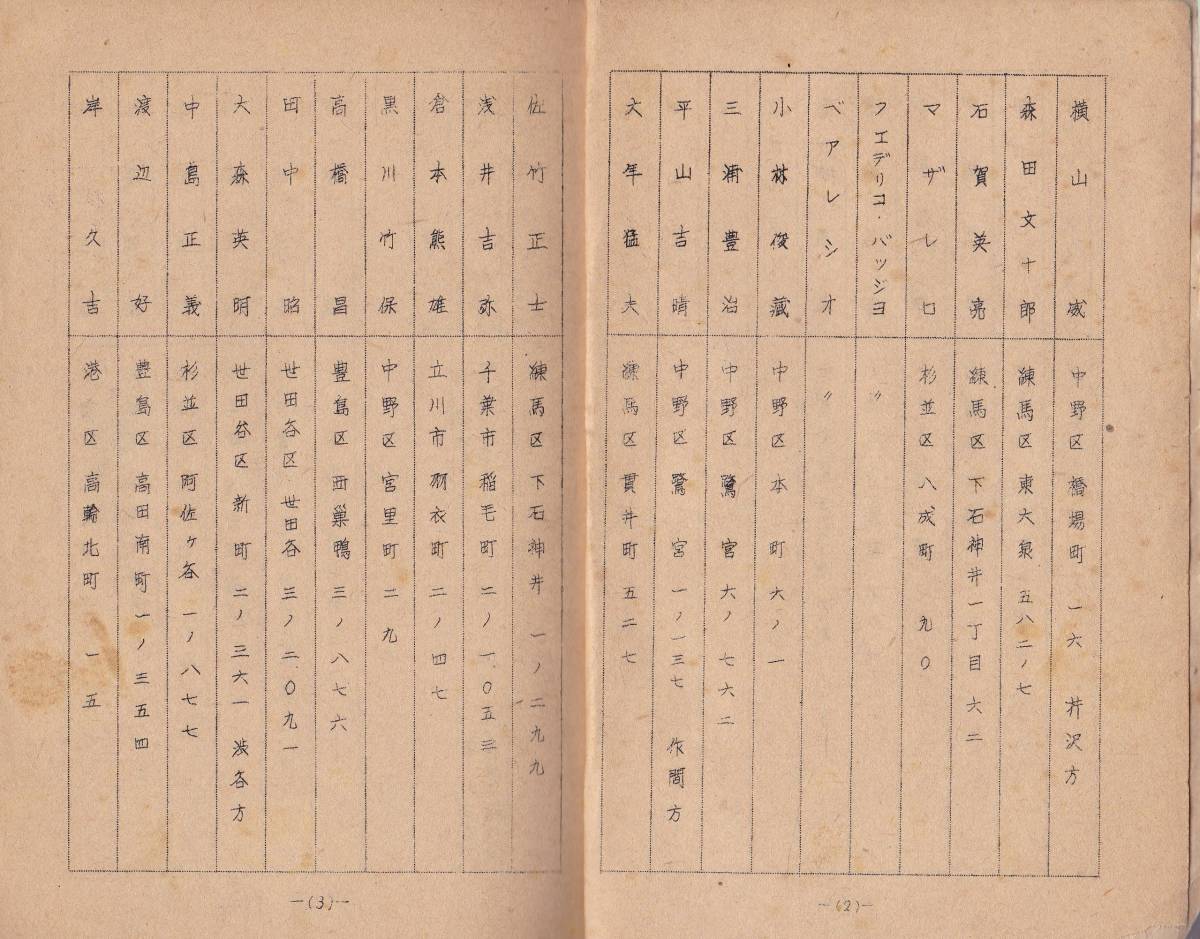 横山威 中野区橋場町一六 芹沢方
森田文十郎 練馬区東大泉五八二ノ七
石賀英亮 練馬区下石神井一丁目六二
マザレロ 杉並区八成町九〇
フエデリコ・バッジヨ 〃
ベアレシオ 〃
小林俊藏 中野区本町六ノ一
三浦豊治 中野区鷺宮六ノ七六二
平山吉晴 中野区鷺宮一ノ一三七 作間方
大年猛夫 練馬区貫井町五二七
-(2)-
佐竹正士 練馬区下石神井一ノ二九九
浅井吉弥 千葉市稲毛町二ノ一〇五三
倉本熊雄 立川市羽衣町二ノ四七
黒川竹保 中野区宮里町二九
高橋昌 豊島区西巣鴨三ノ八七六
田中昭 世田谷区世田谷三ノ二〇九一
大森英明 世田谷区新町二ノ三六一 渋谷方
中島正義 杉並区阿佐ヶ谷一ノ八七七
渡辺好 豊島区高田南町一ノ三五四
岸久吉 港区高輪北町一五
-(3)-